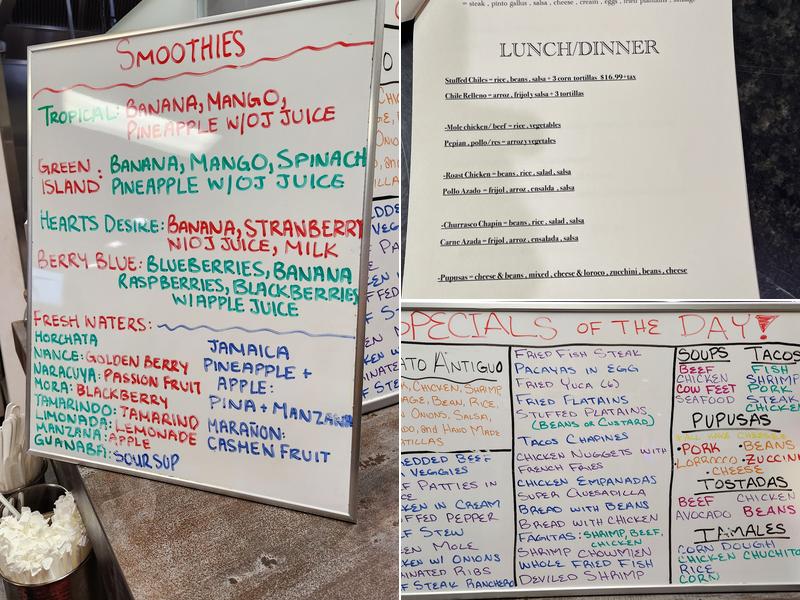 SMOOTHIES
TROPICAL: BANANA, MANGO,
PINEAPPLE W/OJ JUICE
GREEN : BANANA, MANGO, SPINACH
ISLAND PINEAPPLE W/OJ JUICE
HEARTS DESIRE: BANANA, STRAWBERRY
W/OJ JUICE, MILK
BERRY BLUE: BLUEBERRIES, BANANA
RASPBERRIES, BLACKBERRIES
W/APPLE JUICE
FRESH WATERS:
HORCHATA
NANCE: GOLDEN BERRY
NARACUYA: PASSION FRUIT
MORA: BLACKBERRY
TAMARINDO: TAMARIND
LIMONADA: LEMONADE
MANZANA: APPLE
GUANABA: SOURSUP
JAMAICA
PINEAPPLE +
APPLE:
PINA + MANZANA
MARAÑON:
CASHEN FRUIT
= steak , pinto gallus , salsa , cheese , cream , eggs , fried plantains , sausage
LUNCH/DINNER
Stuffed Chiles = rice , beans , salsa + 3 corn tortillas $16.99+tax
Chile Relleno = arroz , frijol y salsa + 3 tortillas
-Mole chicken/ beef = rice , vegetables
Pepian , pollo/res = arroz y vegetales
-Roast Chicken = beans , rice , salad , salsa
Pollo Azado = frijol , arroz , ensalda , salsa
-Churrasco Chapin = beans , rice , salad , salsa
Carne Azada = frijol , arroz , ensalada , salsa
-Pupusas = cheese & beans , mixed , cheese & loroco , zucchini , beans , cheese
SPECIALS OF THE DAY!
ATO ANTIGUO
, CHICKEN, SHRIMP
AGE, BEAN, RICE,
ONIONS, SALSA,
DO, AND HAND MADE
TILLAS
REDDED BEEF
VEGGIES
F PATTIES IN
CE
KEN IN CREAM
FFED PEPPER
F STEW
EN MOLE
KEN W/ ONIONS
INATED RIBS
F STEAK RANCHERO
FRIED FISH STEAK
PACAYAS IN EGG
FRIED YUCA (6)
FRIED PLATAINS
STUFFED PLATAINS
(BEANS OR CUSTARD)
TACOS CHAPINES
CHICKEN NUGGETS WITH
FRENCH FRIES
CHICKEN EMPANADAS
SUPER QUESADILLA
BREAD WITH BEANS
BREAD WITH CHICKEN
FAGITAS: SHRIMP, BEEF,
CHICKEN
SHRIMP CHOWMIEN
WHOLE FRIED FISH
DEVILED SHRIMP
SOUPS
BEEF
CHICKEN
COW FEET
SEAFOOD
TACOS
FISH
SHRIMP
PORK
STEAK
CHICKEN
PUPUSAS
•PORK •BEANS
•LORROCO •ZUCCINI
•CHEESE
TOSTADAS
BEEF CHICKEN
AVOCADO BEANS
TAMALES
CORN DOUGH
CHICKEN CHUCHITO
RICE
CORN